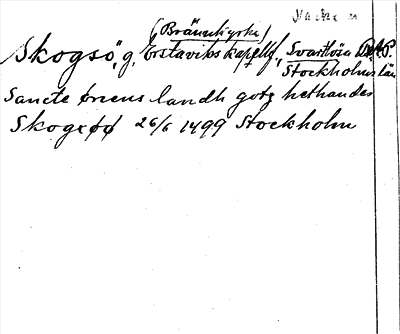 Nacka
(Brännkyrka)
Skogsö, g. Erstaviks kapellf., Svartlösa
Stockholms län
Sancte ØriensS landh gotz hethandes
Skogxøø 26/6 1499 Stockholm